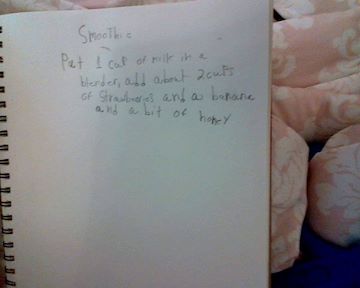 Smoothie
Put 1 cup of milk in a
blender, add about 2 cups
of strawberries and a banana
and a bit of honey